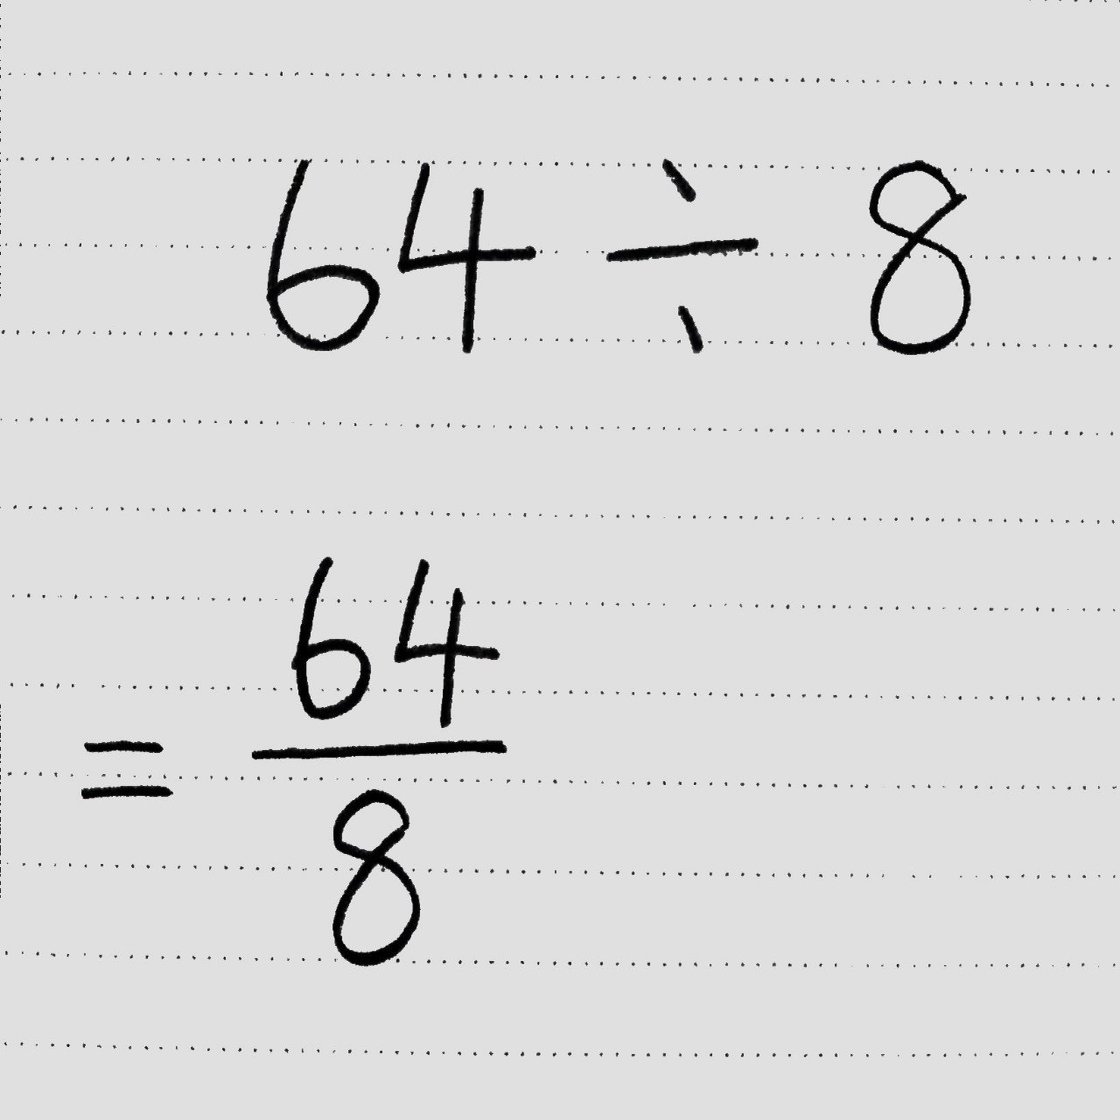 64 ÷ 8
= 64/8